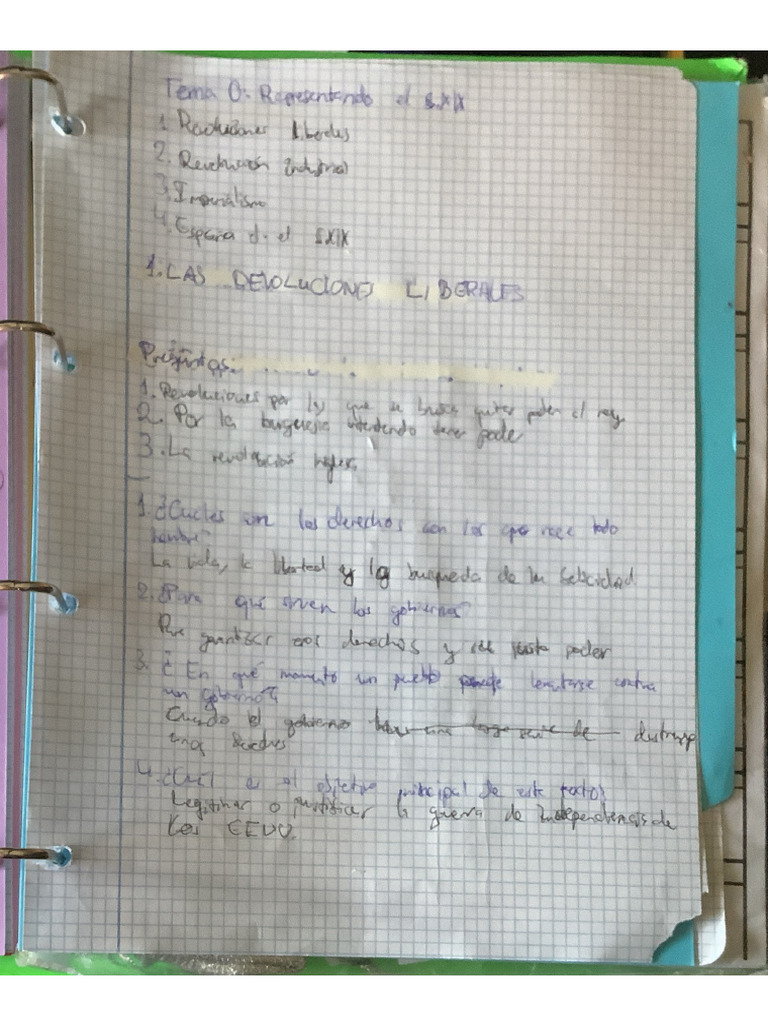 Tema 0: Representando el S.XIX
1. Revoluciones liberales
2. Revolución Industrial
3. Imperialismo
4. España d. el SXIX
1. LAS REVOLUCIONES LIBERALES
Preguntas:
1. Revoluciones por las que se busca quitar poder al rey
2. Por la burguesía intentando tener poder
3. La revolución inglesa
1. ¿Cuales son los derechos con los que nace todo
hombre?
La vida, la libertad y la busqueda de la felicidad
2. ¿Para qué sirven los gobiernos?
Para garantizar esos derechos y su justo poder
3. ¿En qué momento un pueblo puede levantarse contra
un gobierno?
Cuando el gobierno haga una larga serie de
4. ¿Cuál es el objetivo principal de este texto?
Legitimar o justificar la guerra de Independencia de
Los EEUU.